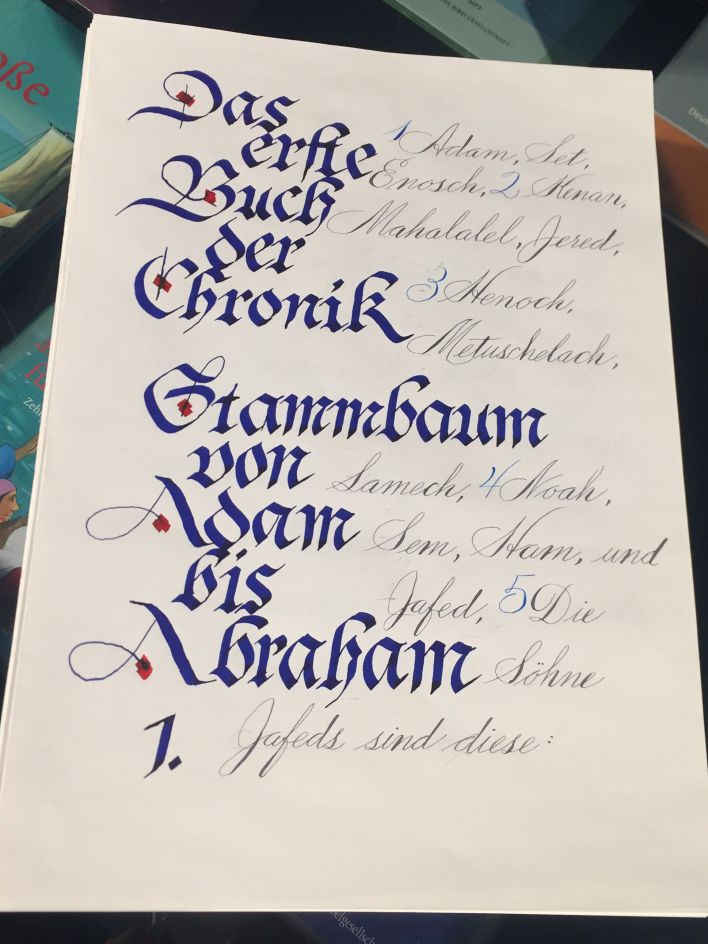 Das
erste
Buch
der
Chronik
1 Adam, Set,
Enosch, 2 Kenan,
Mahalalel, Jered,
3 Henoch,
Metuschelach,
Stammbaum
von
Adam
bis
Abraham
1.
Lamech, 4 Noah,
Sem, Ham, und
Jafed, 5 Die
Söhne
Jafeds sind diese: